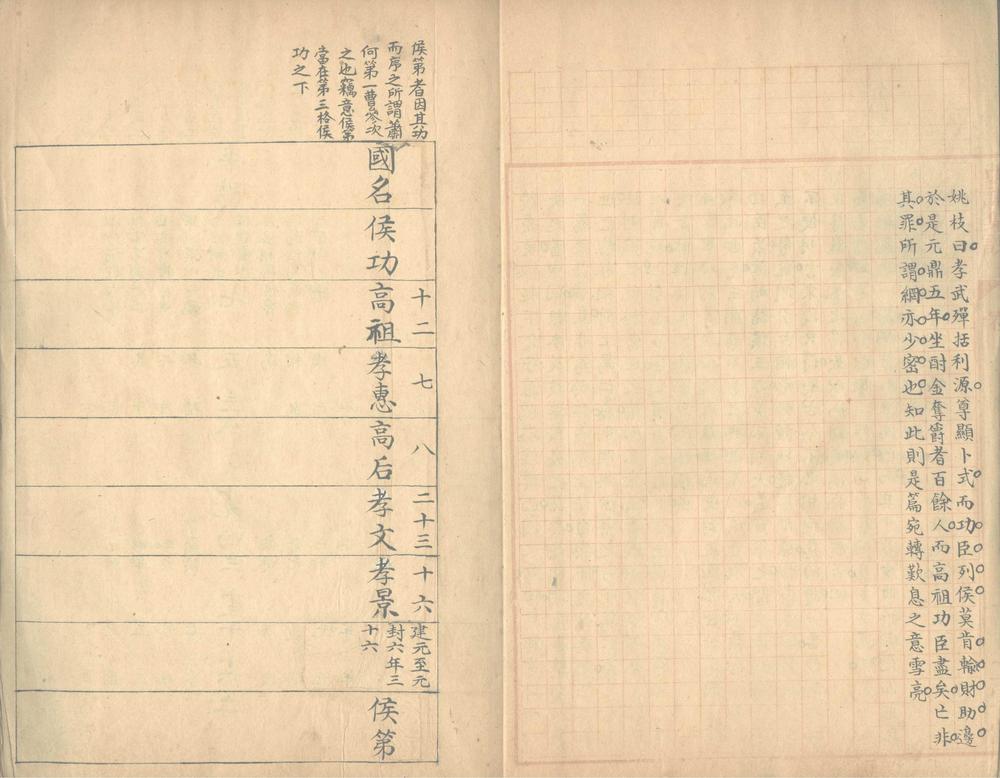 姚枝曰孝武殫括利源尊顯卜式而功臣列侯莫肯輸財助邊
於是元鼎五年坐酎金奪爵者百餘人而高祖功臣盡矣亡非
其罪所謂網亦少密也知此則是篇宛轉歎息之意雪亮
侯第者因其功
而序之所謂蕭
何第一曹參次
之也竊意侯第
當在第三格侯
功之下
國名
侯功
高祖
十二
孝惠
七
高后
八
孝文
二十三
孝景
十六
建元至元
封六年三
十六
侯第